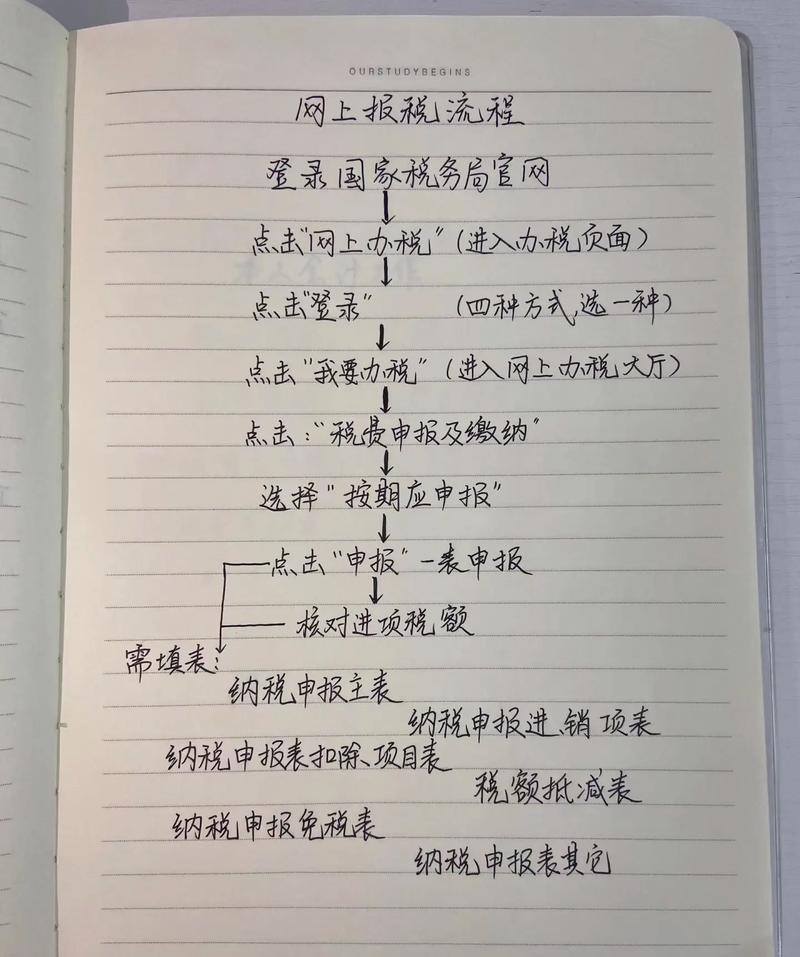 OURSTUDYBEGINS
网上报税流程
登录国家税务局官网
点击"网上办税"(进入办税页面)
点击"登录" (四种方式,选一种)
点击"我要办税"(进入网上办税大厅)
点击:"税费申报及缴纳"
选择"按期应申报"
点击"申报"一表申报
核对进项税额
需填表:
纳税申报主表
纳税申报进、销项表
纳税申报表扣除、项目表
税额抵减表
纳税申报免税表
纳税申报表其它